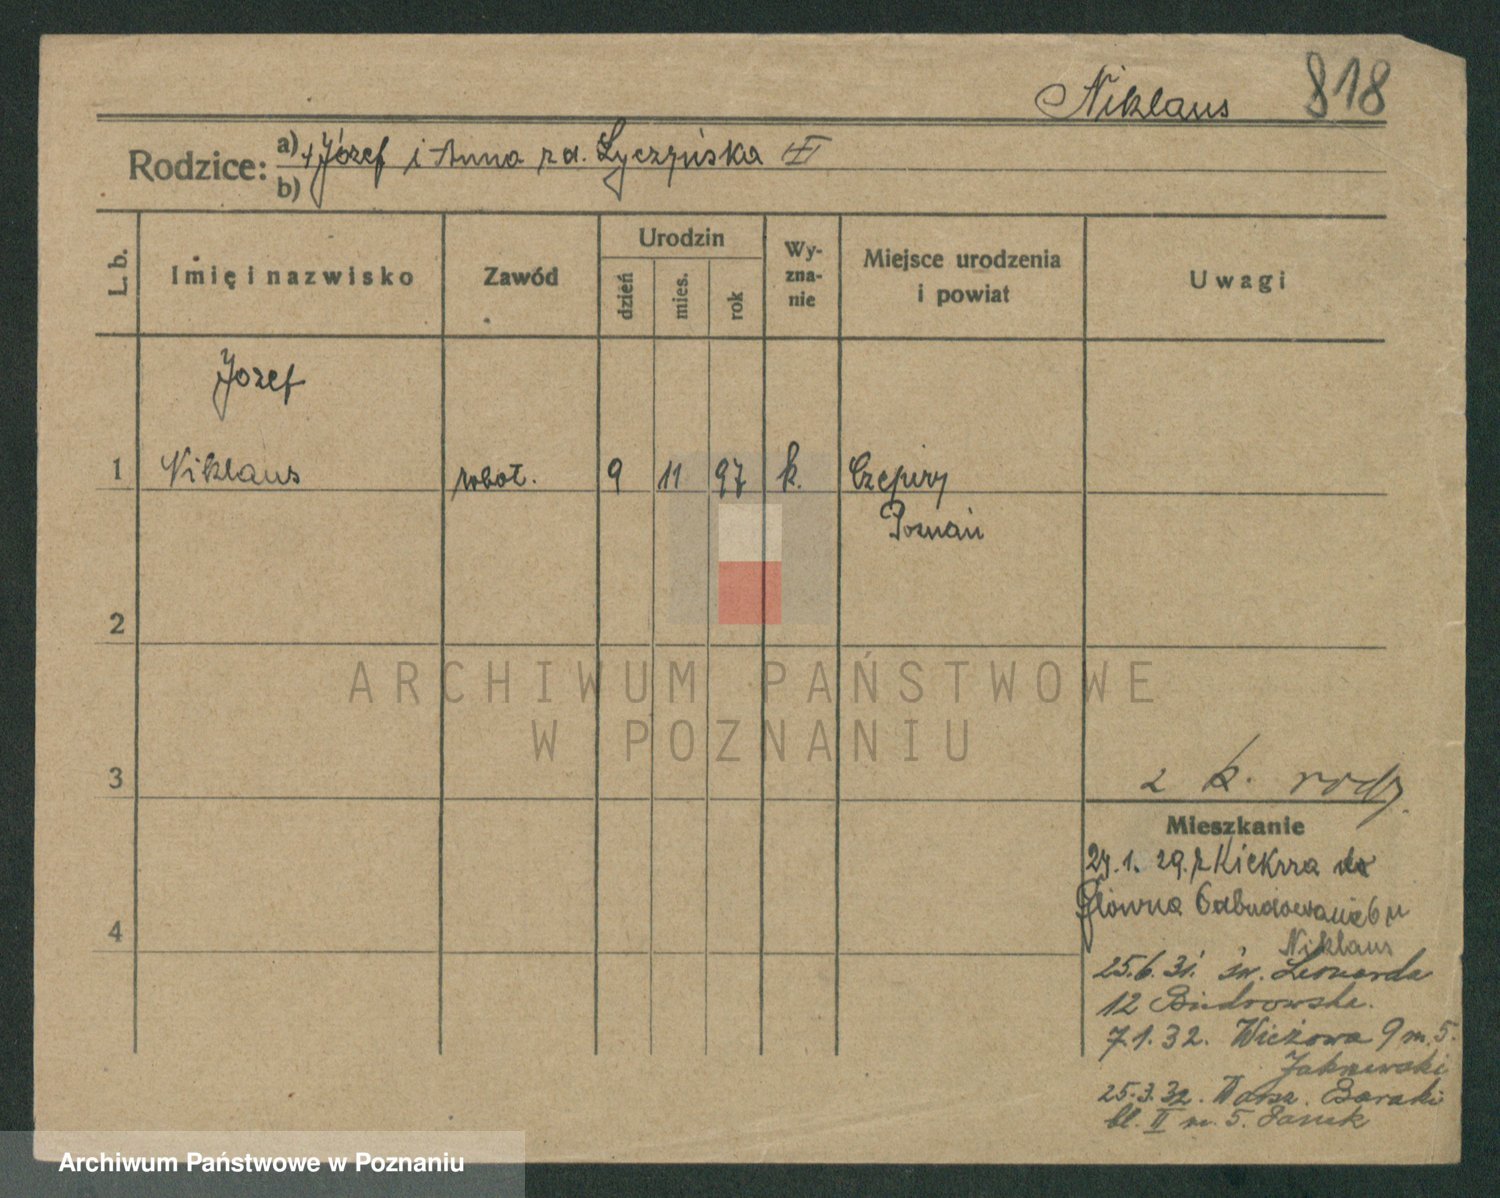 Niklaus 818
Rodzice: a) + Józef i Anna zd. Łyczyńska
b)
L. b. Imię i nazwisko Zawód Urodzin dzień mies. rok Wy-zna-nie Miejsce urodzenia i powiat Uwagi
Józef
1 Niklaus robot. 9 11 97 k. Czapury
Poznań
2
3
2 k. rodz.
Mieszkanie
27.1.29. z Kiekrza do
Główna Odbudowanie 6 u
Niklaus
4
25.6.31. św. Leonarda
12
7.1.32. Wieżowa 9 m. 5.
25.3.32. Warsz. Baraki
bl. II m. 5.
ARCHIWUM PAŃSTWOWE
W POZNANIU
Archiwum Państwowe w Poznaniu